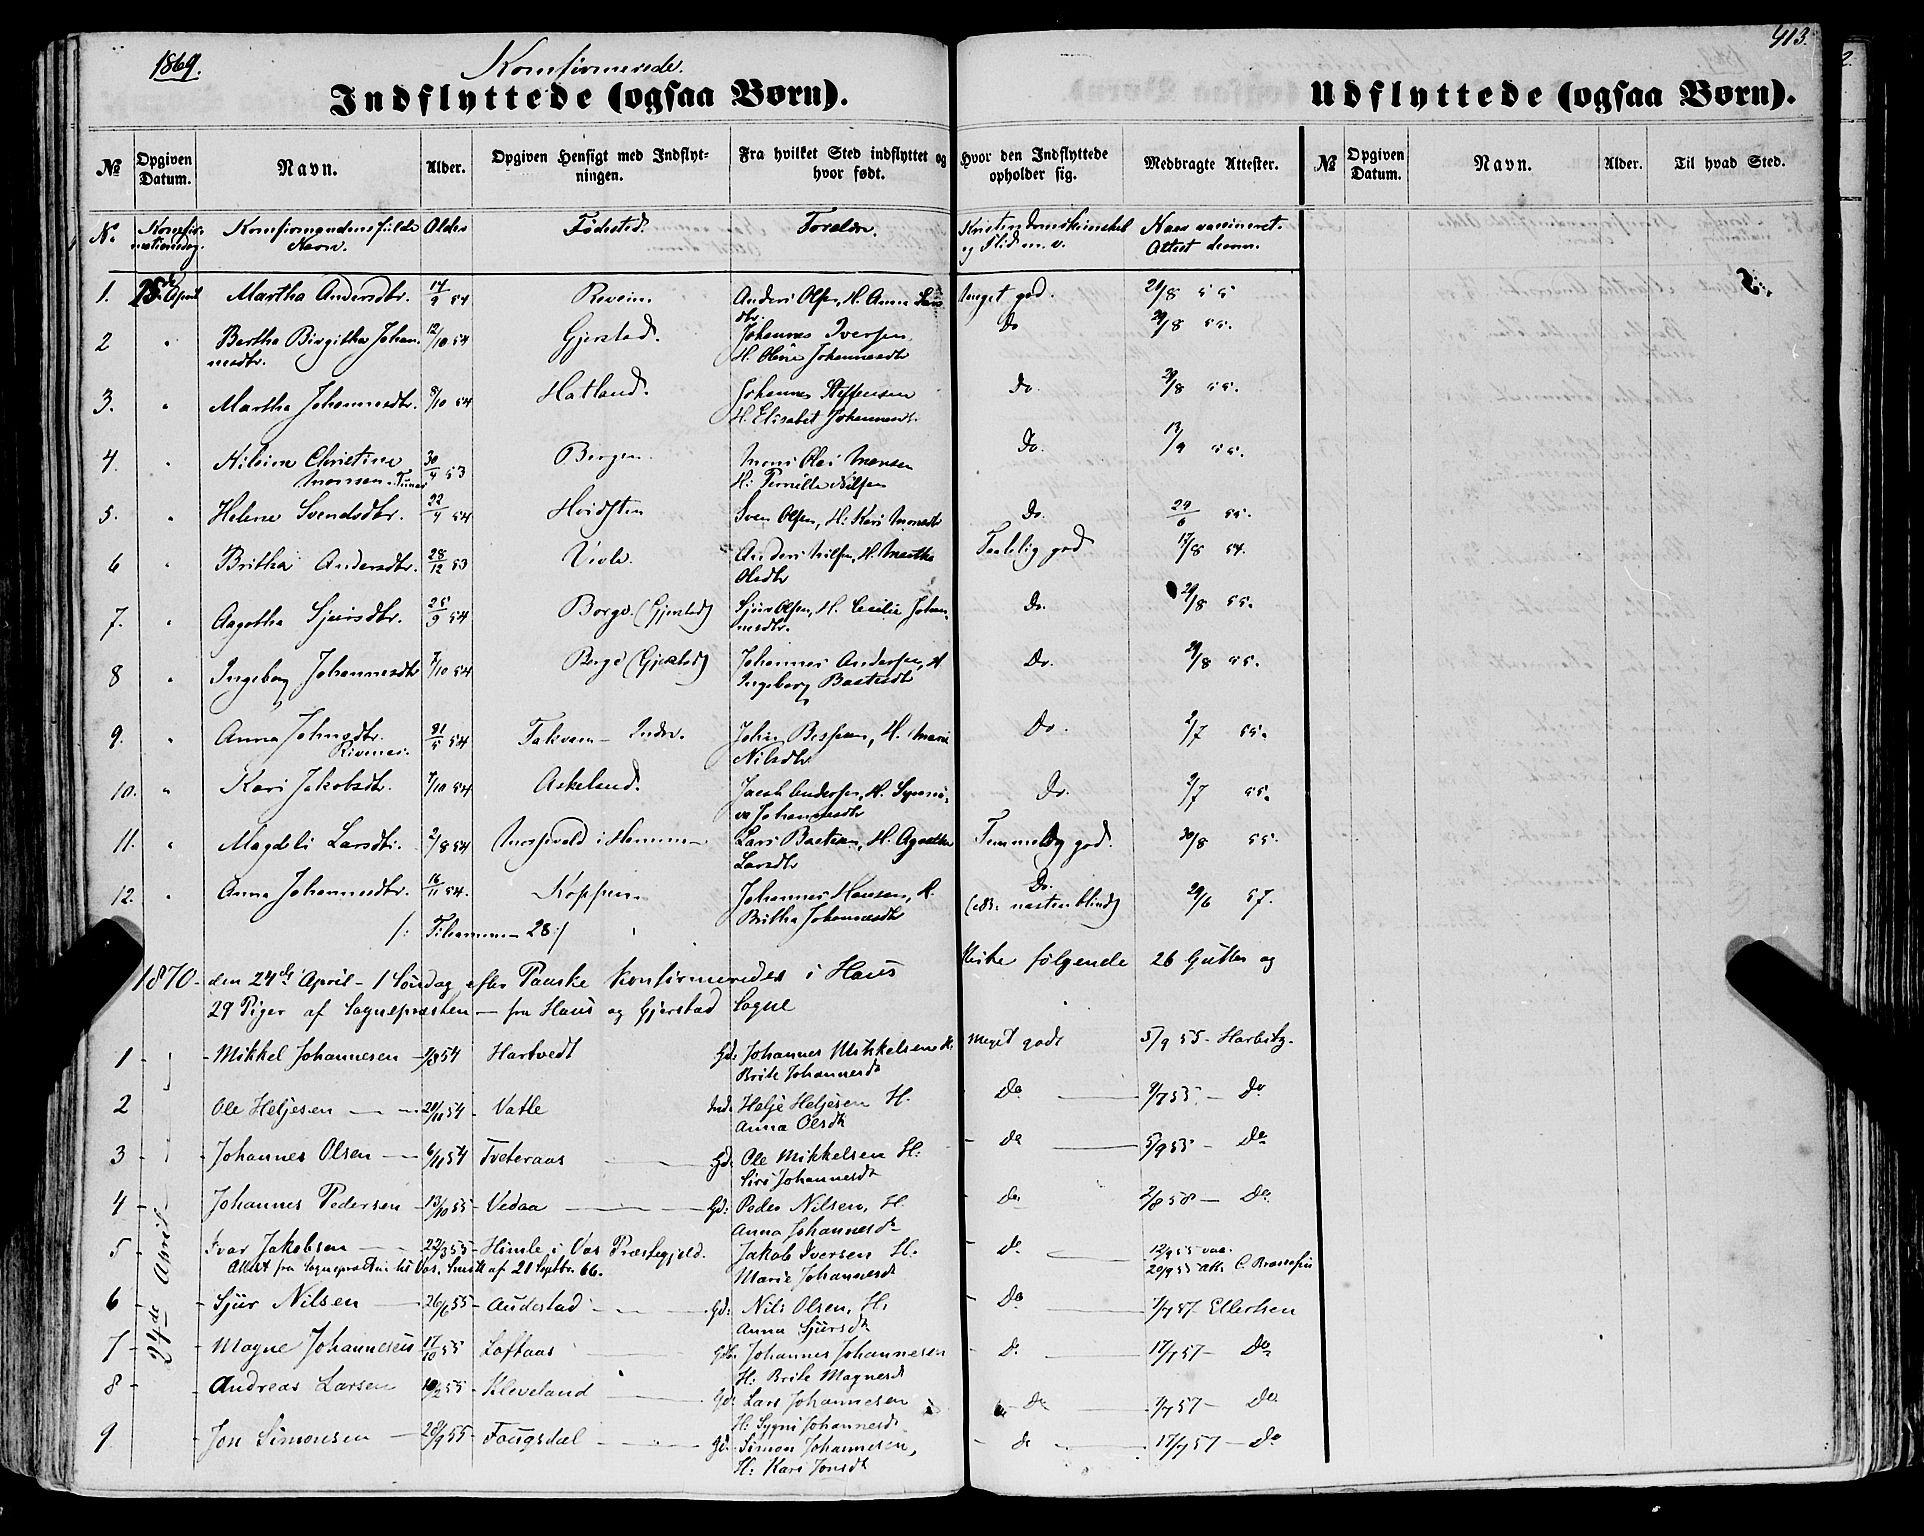 1869.
Konfirmerede.
413.
Indflyttede (ogsaa Børn).
Udflyttede (ogsaa Børn).
№ Opgiven Datum. Navn. Alder. Opgiven Hensigt med Indflytningen. Fra hvilket Sted indflyttet og hvor født. Hvor den Indflyttede opholder sig. Medbragte Attester. № Opgiven Datum. Navn. Alder. Til hvad Sted.
No. Konfirmationsdag. Konfirmandens fulde Navn. Alder Fødested. Forældre. Kristendomskundskab og Flid m. v. Naar vaccineret. Attest derom.
1. 25de April Martha Andersdtr. 14/9 54 Reveim Anders Olsen, H. Anna Larsdtr. Meget god. 29/8 55
2 " Bertha Birgitha Johannesdtr. 12/10 54 Gjerstad. Johannes Iversen, H. Oline Johannesdtr Do 29/8 55.
3. " Martha Johannesdtr. 8/10 54 Hatland. Johannes Steffensen H. Elisabet Johannesdt. Do. 29/8 55.
4. " Christine Monsen 30/4 53 Bergen. Mons Olai Monsen H: Pernille Nilsen Do. 13/9 55.
5. " Helene Svendsdtr. 22/4 54 Hvidsten Sven Olsen, H: Kari Monsdtr Do. 29/6 55.
6 " Britha Andersdtr. 28/12 53 Viole. Anders Nilsen, H. Martha Olsdtr Taalelig god 17/8 54.
7. " Aagotha Sjursdtr. 25/9 54 Borge (Gjerstad) Sjur Olsen, H. Cecilie Johannesdtr. Do. 29/8 55.
8 " Ingeborg Johannesdtr 7/10 54 Berge (Gjerstad) Johannes Andersen, H Ingeborg Bastesdtr Do. 29/8 55.
9. " Anna Johnsdtr. Rivenes. 31/5 54 Takvam – Indre. John Bessesen, H. Marie Nilsdtr Do. 2/7 55.
10. " Kari Jakobsdtr. 7/10 54 Askeland. Jacob Andersen, H. Synneve Johannesdtr Do. 2/7 55.
11. " Magdeli Larsdtr. 2/8 54 Mosevold i Hammer Lars Bastesen, H. Agatha Larsdtr Temmelig god. 30/8 55.
12. " Anna Johannesdtr. 16/11 54. Koppen Johannes Hansen, H. Britha Johannesdtr Do. (NB. næsten blind) 29/6 57.
/: Tilsammen – 28 :/
1870. den 24de April – 1 Søndag efter Paaske konfirmeredes i Haus Kirke følgende 26 Gutter og
29 Piger af Sognepræsten – fra Haus og Gjerstad Sogne
1 - Mikkel Johannesen - 54 Hartvedt Gd: Johannes Mikkelsen H. Brite Johannesdt meget gode 5/9 55 - Harbitz.
2 Ole Heljesen 20/11 54 - Vatle Ind: Helje Heljesen H. Anna Olsdt - Do 9/7 55 - Do
3 - Johannes Olsen 6/11 54 Tveteraas Gd: Ole Mikkelsen H: Siri Johannesdt - Do 5/9 55 - Do
4 Johannes Pedersen 13/10 55 - Vedaa Gd: Peder Nilsen, H. Anna Johannesdt - Do 2/8 58 - Do
5 Ivar Jakobsen 22/3 55 - Himle i Vos Præstegjeld. Jakob Iversen H: Marie Johannesdt - Do 12/9 55 vac. 20/9 55 att.
Attest fra Sognepræsten til Vos. af 21 Septbr. 66.
6 - Sjur Nilsen 26/6 55 - Audestad Gd: Nils Olsen, H: Anna Sjursdt - Do 7/7 57. Ellertsen
7 - Magne Johannesen 17/10 55 Loftaas Gd: Johannes Johannesen H: Brite Magnesdt - Do 17/7 57 - Do
8 - Andreas Larsen 10/2 55 - Kleveland Gd: Lars Johannesen H: Sygni Johannesdt - Do 7/7 57 - Do
9 - Jon Simonsen 28/9 55 - Fougsdal Gd: Simon Johannesen, H: Kari Jonsdt - Do 17/7 57 - Do
24de April